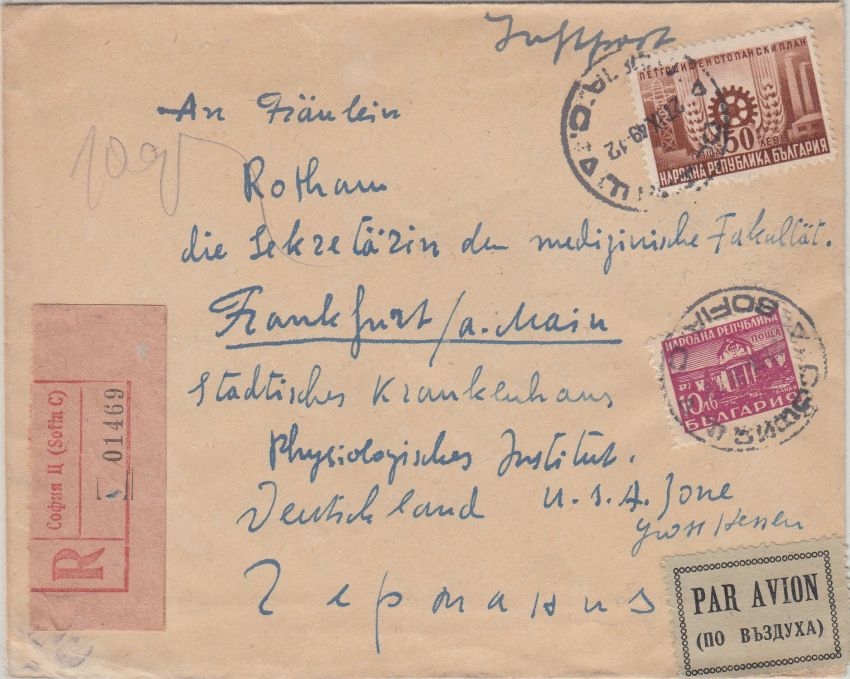 Luftpost
ПЕТГОДИШЕН СТОПАНСКИ ПЛАН
ПОЩА 50 ЛЕВА
НАРОДНА РЕПУБЛИКА БЪЛГАРИЯ
An Fräulein
Rotham
die Sekretärin der medizinische Fakultät.
Frankfurt /a. Main
SOFIA C
НАРОДНА РЕПУБЛИКА
ПОЩА
10 ЛВ
БЪЛГАРИЯ
Städtisches Krankenhaus
Physiologisches Institut.
Deutschland U.S.A. Zone
Gross Hessen
Германия
R
София Ц (Sofia C)
01469
PAR AVION
(ПО ВЪЗДУХА)